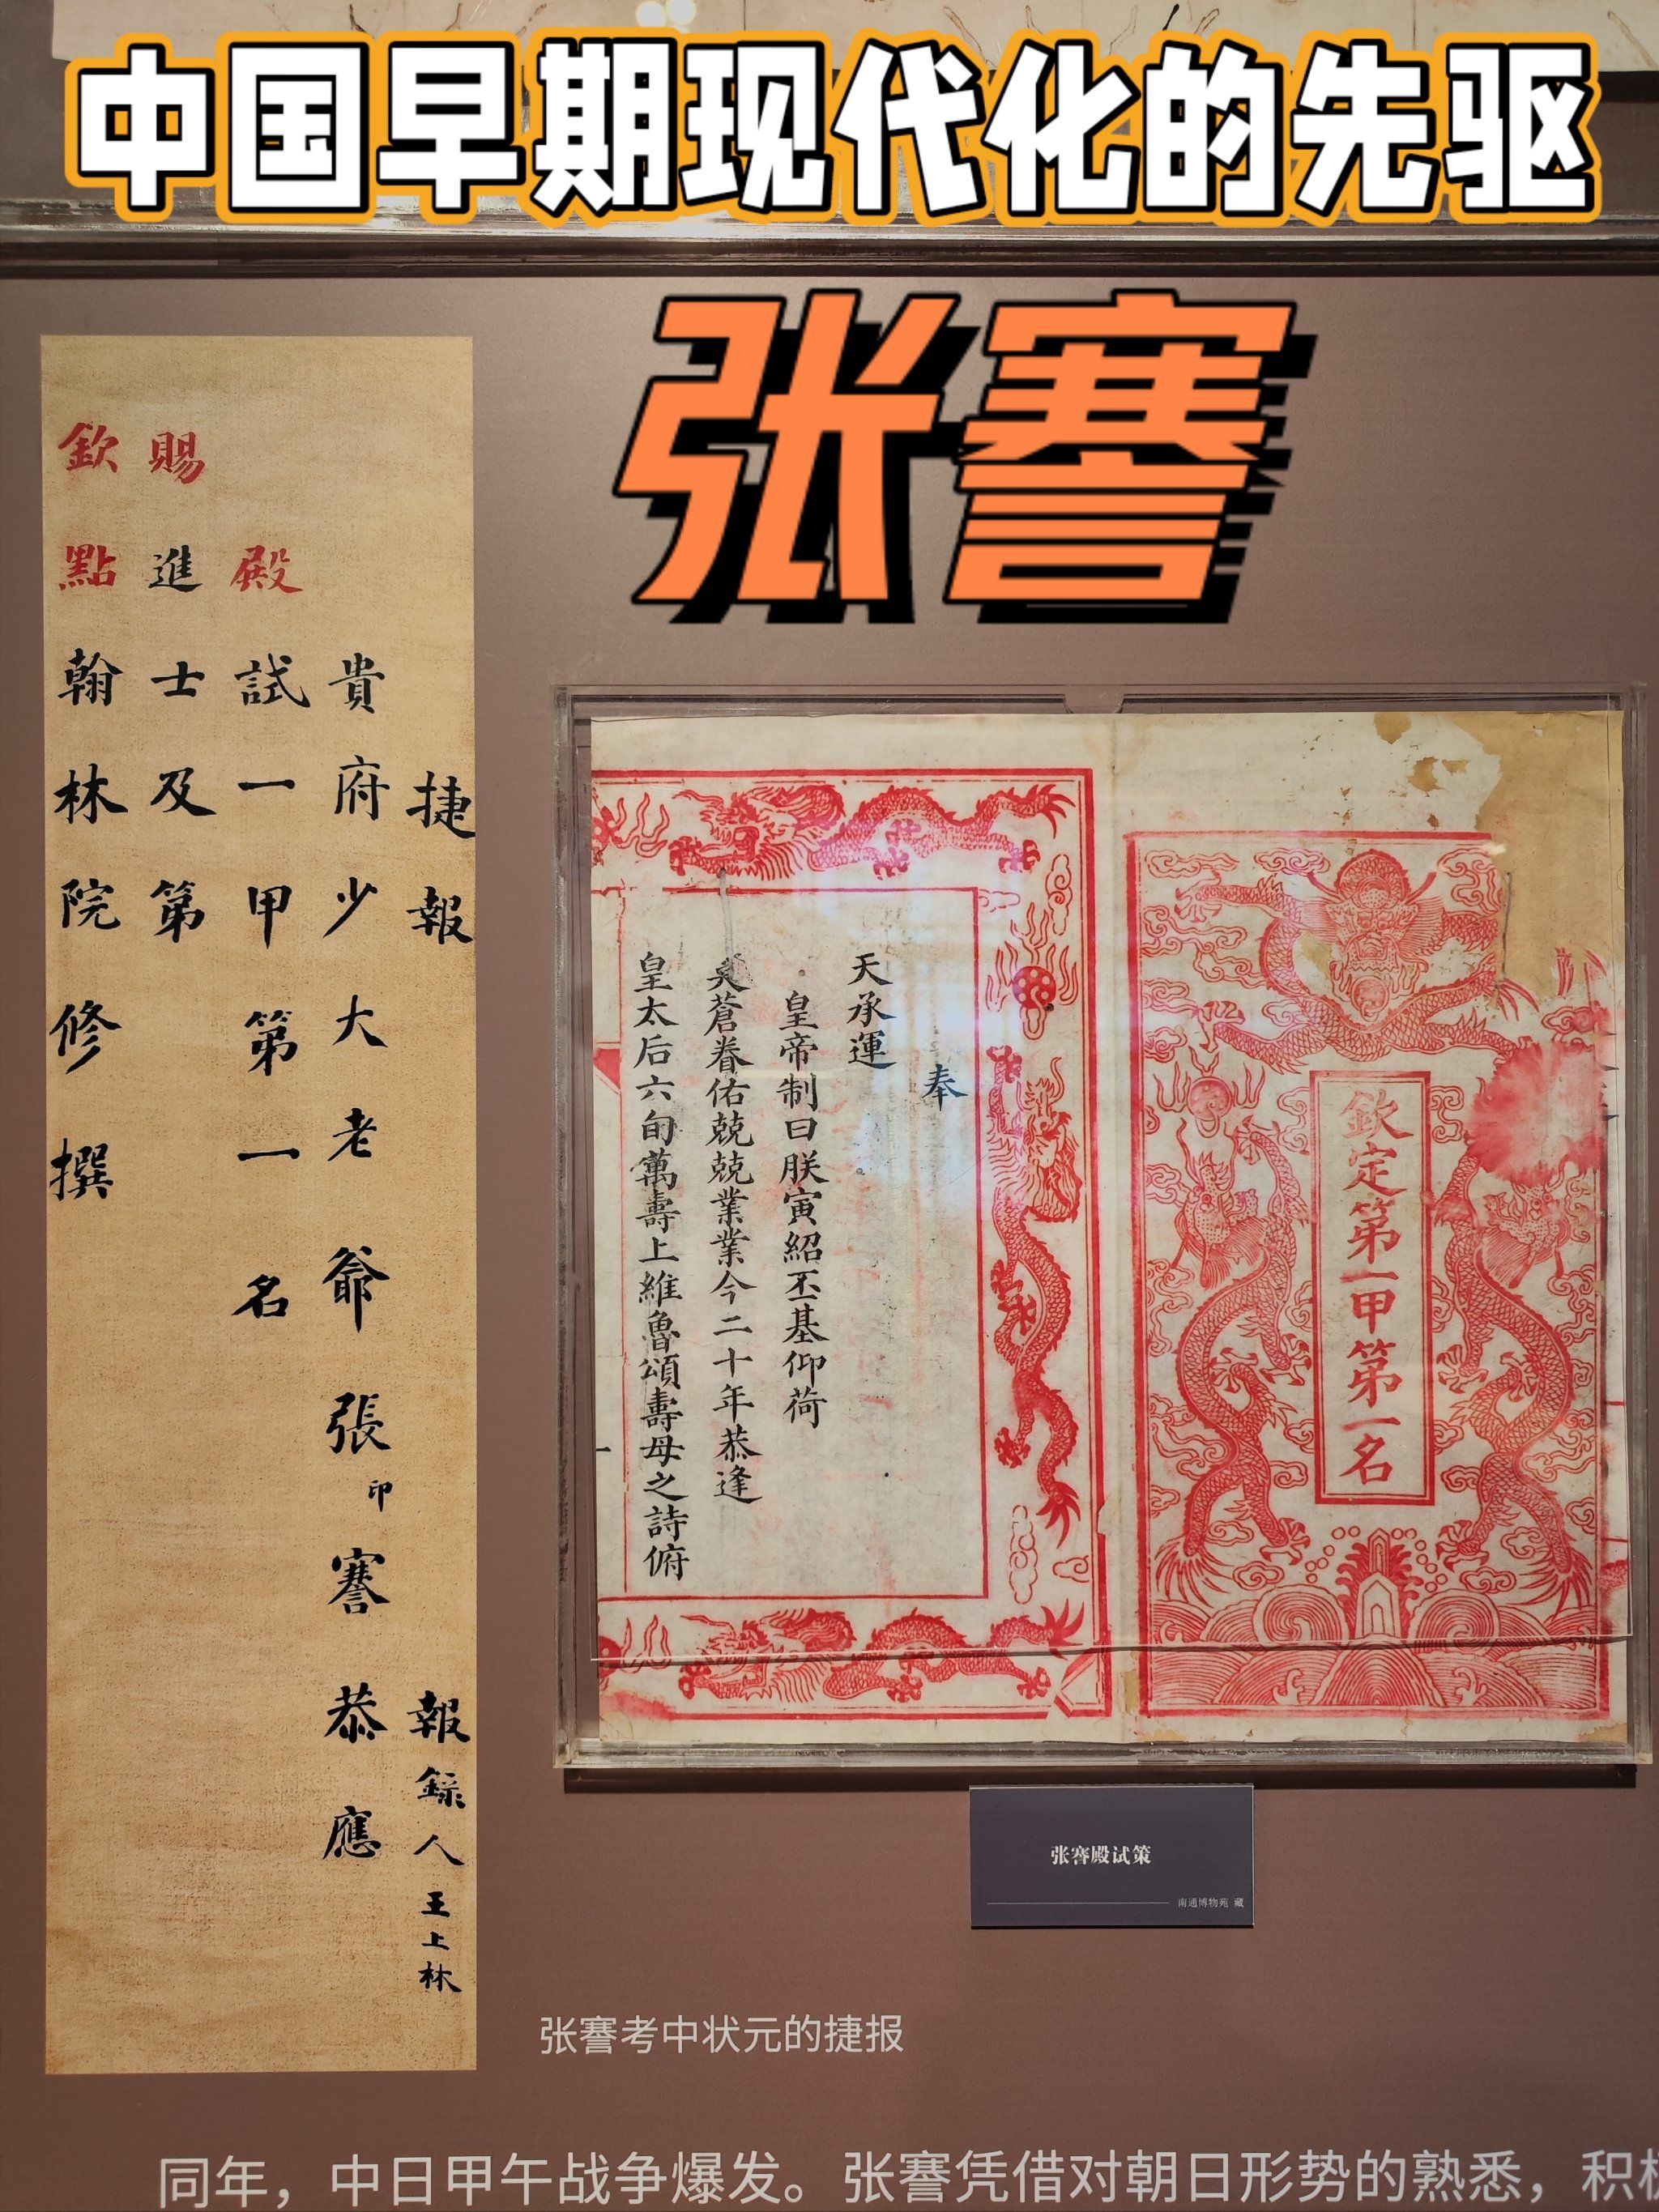 中国早期现代化的先驱
张謇
捷報 報錄人王上林
貴府少大老爺張印謇恭應
殿試一甲第一名
賜進士及第
欽點翰林院修撰
欽定第一甲第一名
奉
天承運
皇帝制曰朕寅紹丕基仰荷
昊蒼眷佑兢兢業業今二十年恭逢
皇太后六旬萬壽上維魯頌壽母之詩俯
张謇殿试策
南通博物苑 藏
张謇考中状元的捷报
同年，中日甲午战争爆发。张謇凭借对朝日形势的熟悉，积